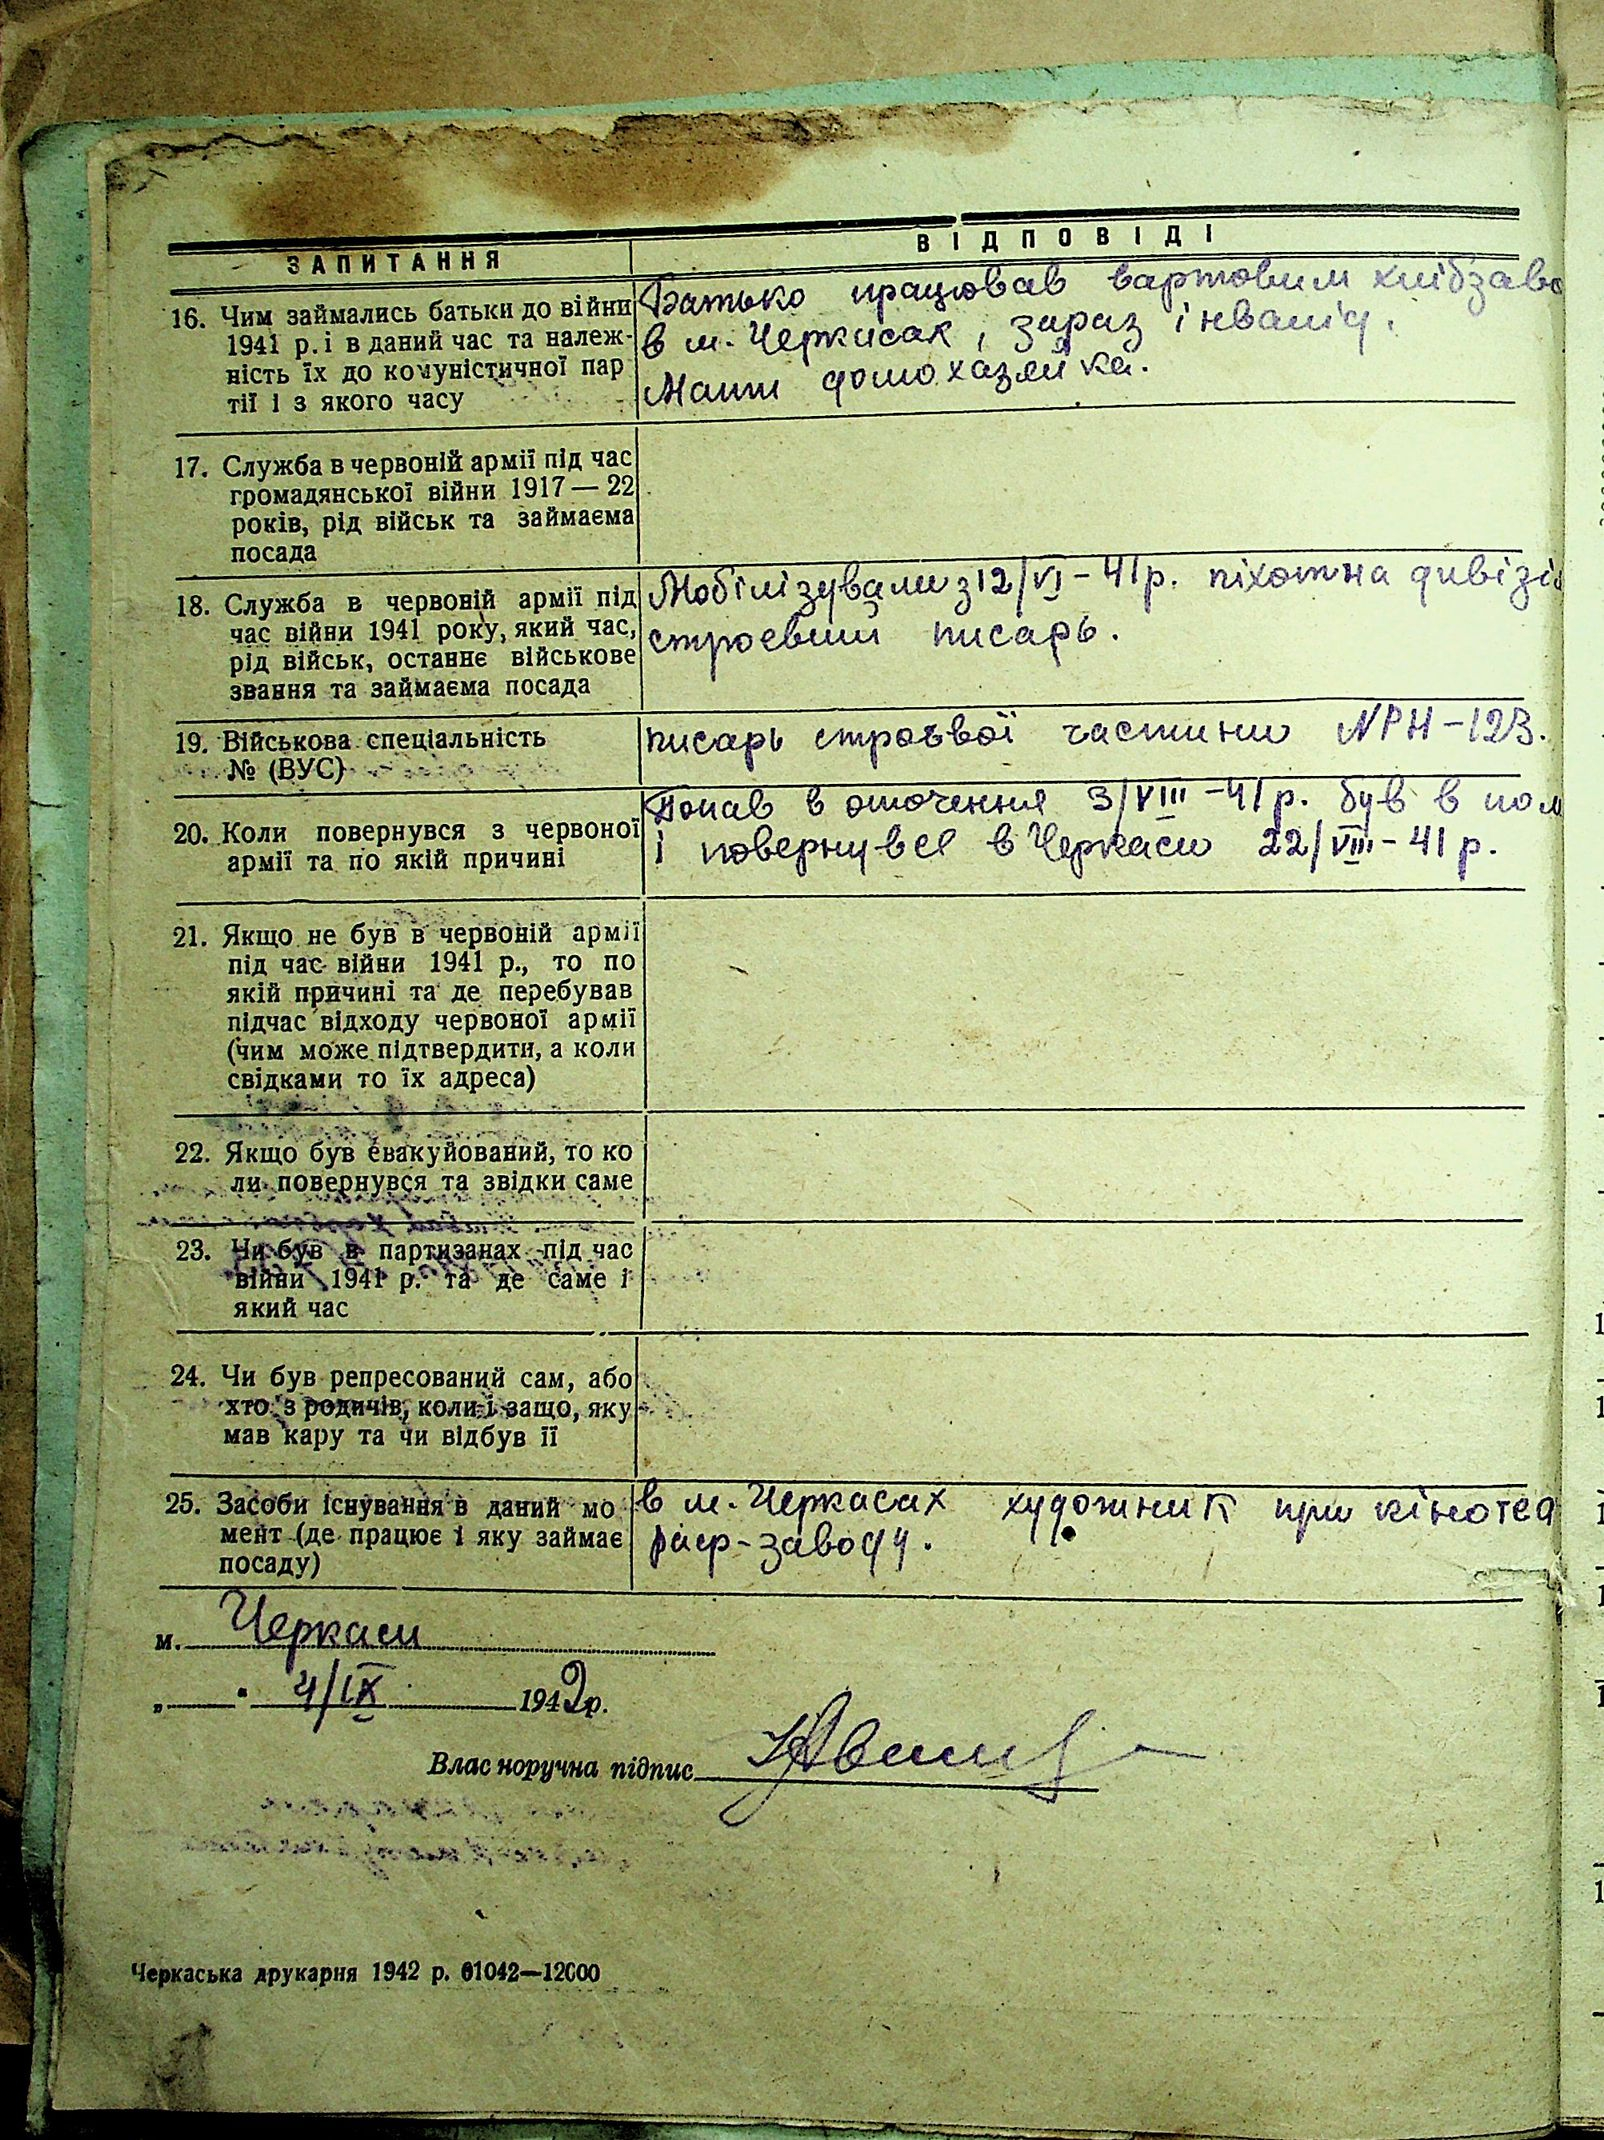 ЗАПИТАННЯ
ВІДПОВІДІ
16. Чим займались батьки до війни
1941 р. і в даний час та належ-
ність їх до комуністичної пар
тії і з якого часу
Батько працював вартовим хлібзаво
в м. Черкасах, зараз інвалід.
Мати домохазяйка.
17. Служба в червоній армії під час
громадянської війни 1917—22
років, рід військ та займаєма
посада
18. Служба в червоній армії під
час війни 1941 року, який час,
рід військ, останнє військове
звання та займаєма посада
Мобілізували з 12/VI-41р. піхотна дивізія
строєвий писарь.
19. Військова спеціальність
№ (ВУС)
писарь строєвої частини №РН-123.
20. Коли повернувся з червоної
армії та по якій причині
Попав в оточення 3/VIII-41р. був в пол
і повернувся в Черкаси 22/VIII-41р.
21. Якщо не був в червоній армії
під час війни 1941 р., то по
якій причині та де перебував
підчас відходу червоної армії
(чим може підтвердити, а коли
свідками то їх адреса)
22. Якщо був евакуйований, то ко
ли повернувся та звідки саме
23. Чи був в партизанах під час
війни 1941 р. та де саме і
який час
24. Чи був репресований сам, або
хто з родичів, коли і защо, яку
мав кару та чи відбув її
25. Засоби існування в даний мо
мент (де працює і яку займає
посаду)
в м. Черкасах художник при кінотеа
раєр-заводу.
м. Черкаси
„ " 4/IX 1942р.
Власноручна підпис
Черкаська друкарня 1942 р. 61042—12000